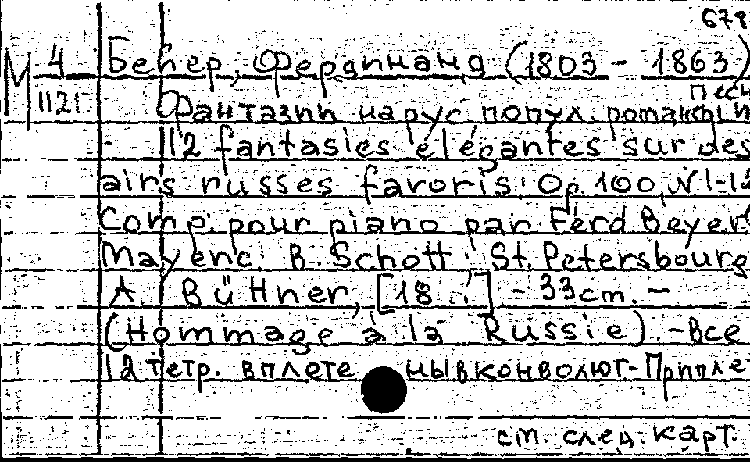 678
М 4 Бейер, Фердинанд (1803 - 1863)
112г Фантазии на рус. попул. романсы и песн
112 fantasies élégantes sur des
airs russes favoris. Op. 100, N 1-12
Comp. pour piano par Ferd Beyer
Mayenc: B. Schott; St. Petersbourg
A. Büttner, [18..] - 33 cm. -
(Hommage à la Russie) - Все
12 тетр. вплете ны в конволют - Приппле
см. след. карт.